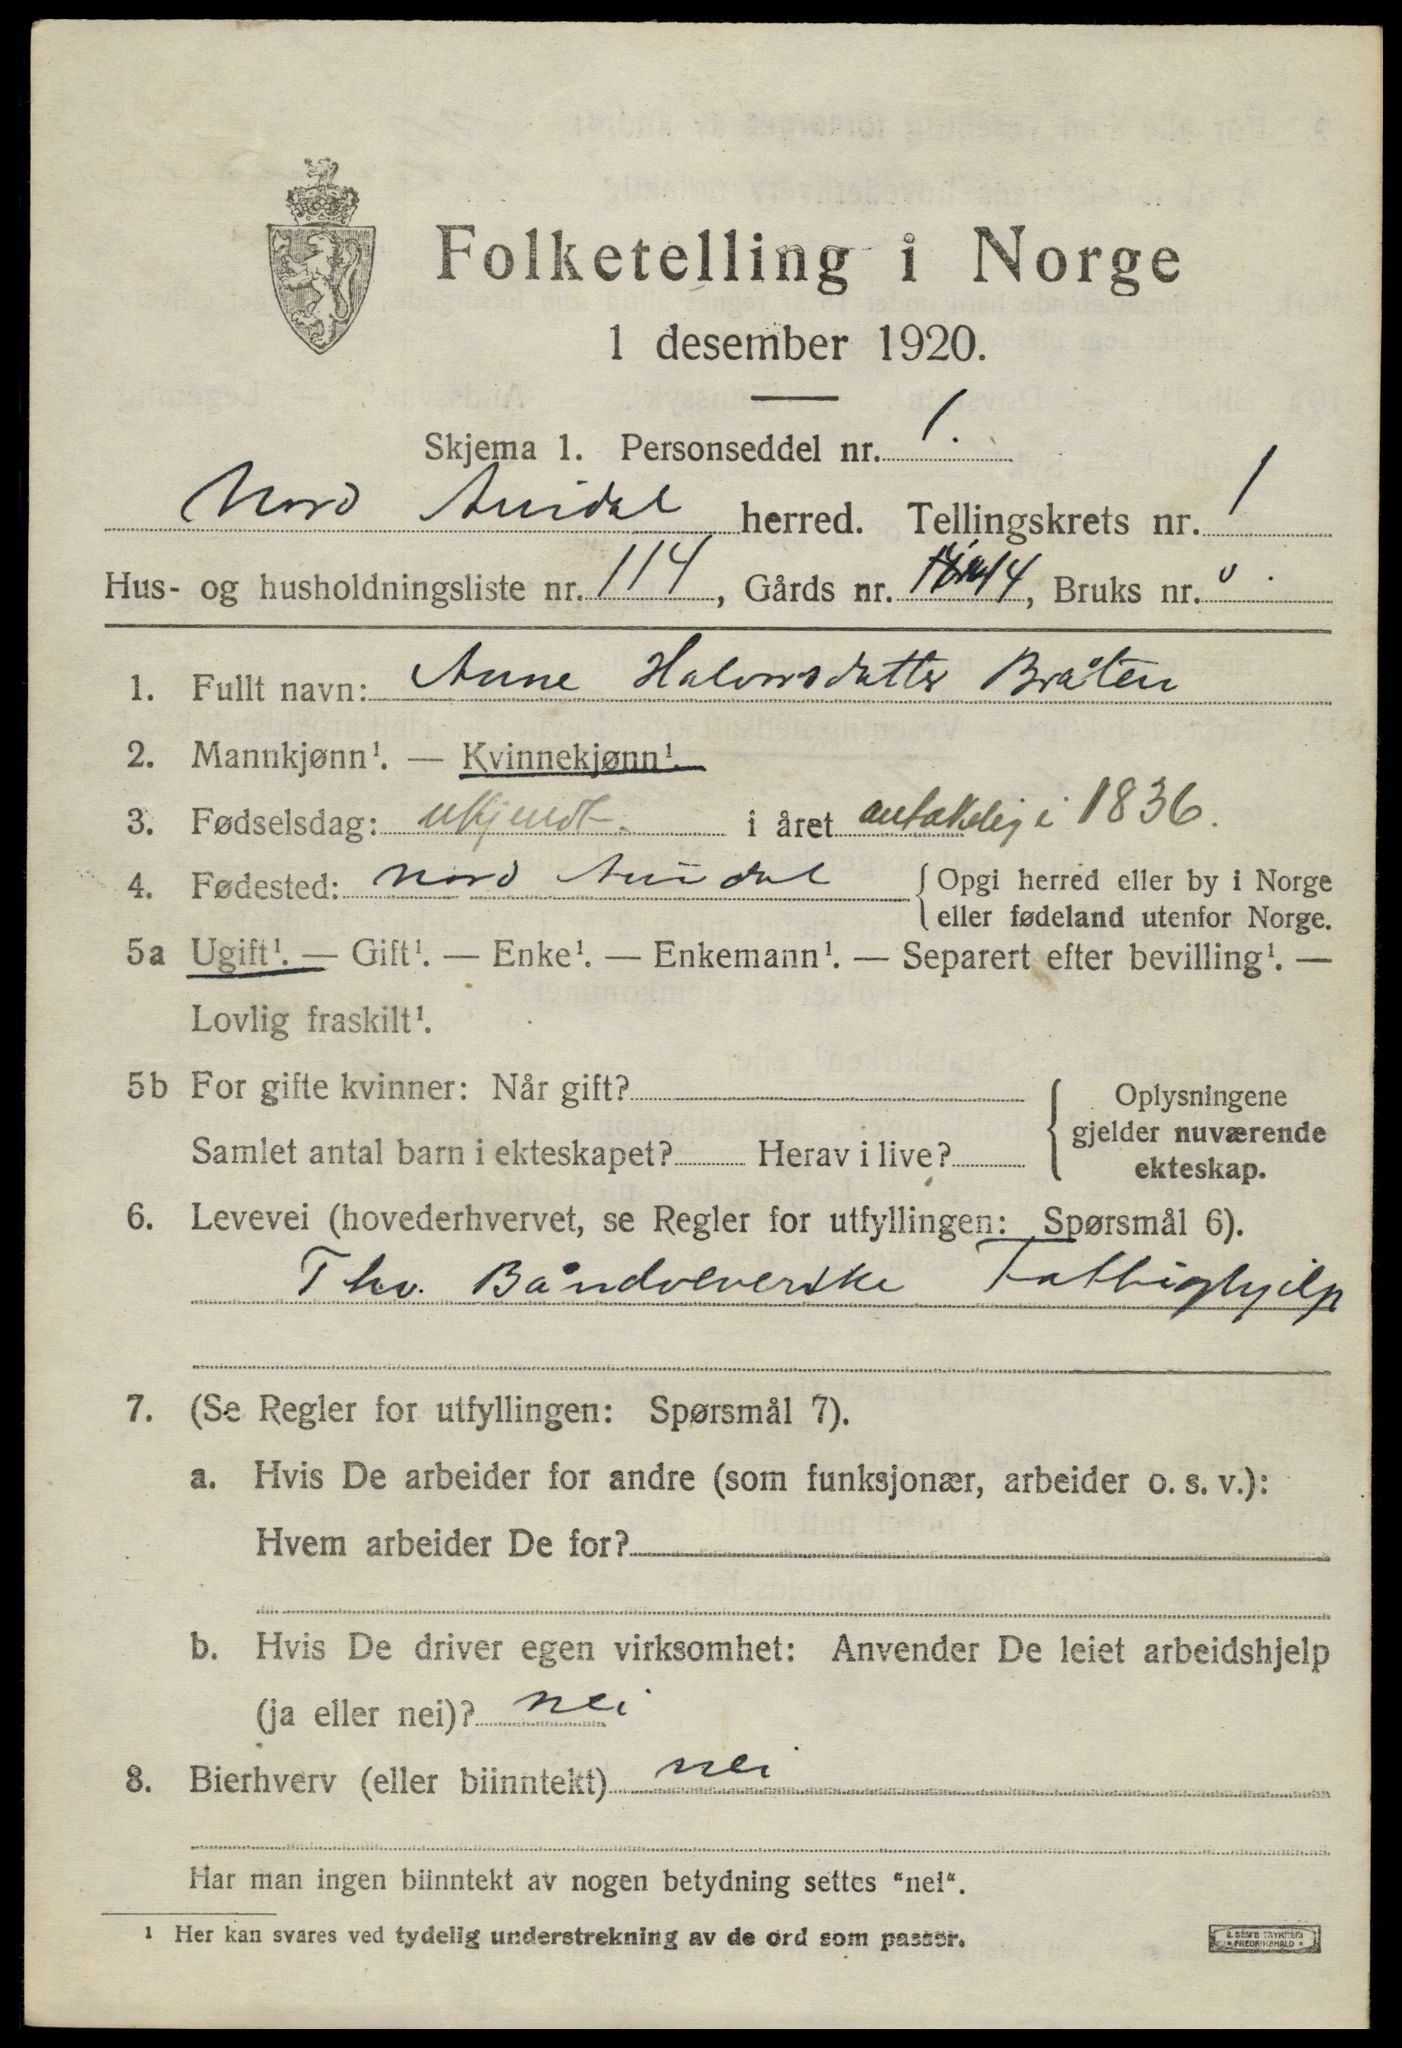 Folketelling i Norge
1 desember 1920.
Skjema 1. Personseddel nr. 1.
Nord Aurdal herred. Tellingskrets nr. 1
Hus- og husholdningsliste nr. 114, Gårds nr. 14, Bruks nr.
1. Fullt navn: Anne Halvorsdatter Bråten
2. Mannkjønn¹. — Kvinnekjønn¹.
3. Fødselsdag: ukjendt. i året antakelig i 1836.
4. Fødested: Nord Aurdal {Opgi herred eller by i Norge
eller fødeland utenfor Norge.
5a Ugift¹. — Gift¹. — Enke¹. — Enkemann¹. — Separert efter bevilling¹. —
Lovlig fraskilt¹.
5b For gifte kvinner: Når gift? { Oplysningene
gjelder nuværende
Samlet antal barn i ekteskapet? Herav i live?
ekteskap.
6. Levevei (hovederhvervet, se Regler for utfyllingen: Spørsmål 6).
Fhv. Båndveverske Fattighjelp
7. (Se Regler for utfyllingen: Spørsmål 7).
a. Hvis De arbeider for andre (som funksjonær, arbeider o. s. v.):
Hvem arbeider De for?
b. Hvis De driver egen virksomhet: Anvender De leiet arbeidshjelp
(ja eller nei)? nei
8. Bierhverv (eller biinntekt) nei
Har man ingen biinntekt av nogen betydning settes "nei".
¹ Her kan svares ved tydelig understrekning av de ord som passer.
E. SEM'S TRYKKERI
FREDRIKSHALD